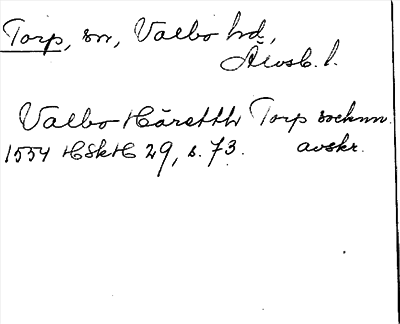 Torp, sn, Valbo hd,
Älvsb. l.
Valbo Häretth Torp socknn
1554 HSkH 29, s. 73. avskr.